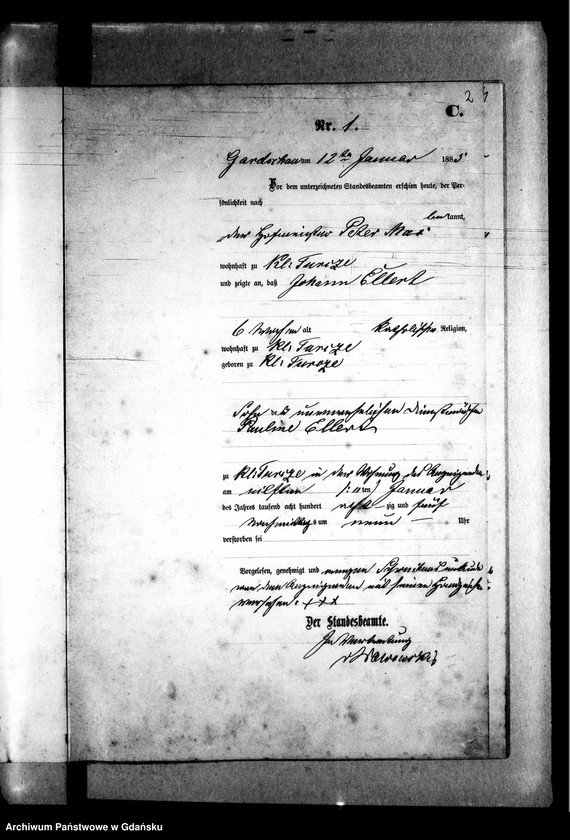 2
C.
Nr. 1.
Gardschau am 12ten Januar 1885
Vor dem unterzeichneten Standesbeamten erschien heute, der Per-
sönlichkeit nach
bekannt,
der Hofmeister Peter
wohnhaft zu Kl: Turze
und zeigte an, daß Johann Ellert
6 Wochen alt katholischer Religion,
wohnhaft zu Kl: Turze
geboren zu Kl: Turze
Sohn der unverehelichten Dienstmädchen
Pauline Ellert
zu Kl: Turze in der Wohnung des Anzeigenden
am eilften (: 11ten) Januar
des Jahres tausend acht hundert acht zig und fünf
Vormittags um neun Uhr
verstorben sei
Vorgelesen, genehmigt und wegen Schreibensunkunde
von dem Anzeigenden mit seinem Handzeichen
versehen: +++
Der Standesbeamte.
In Vertretung
Archiwum Państwowe w Gdańsku